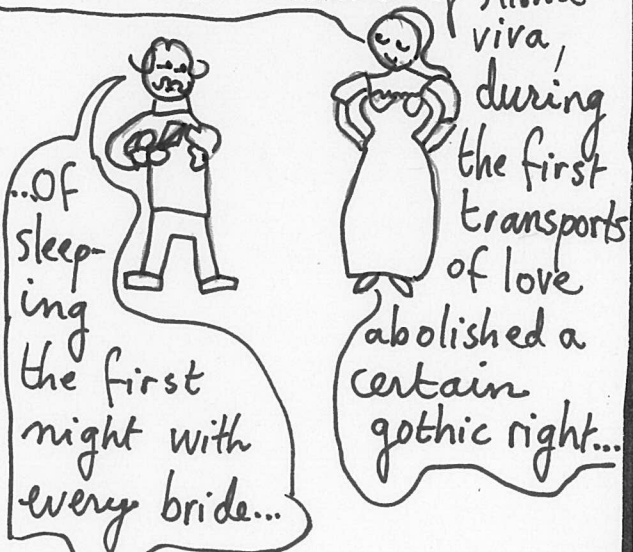 viva,
during
the first
transports
of love
abolished a
certain
gothic right...
...of
sleep-
ing
the first
night with
every bride...